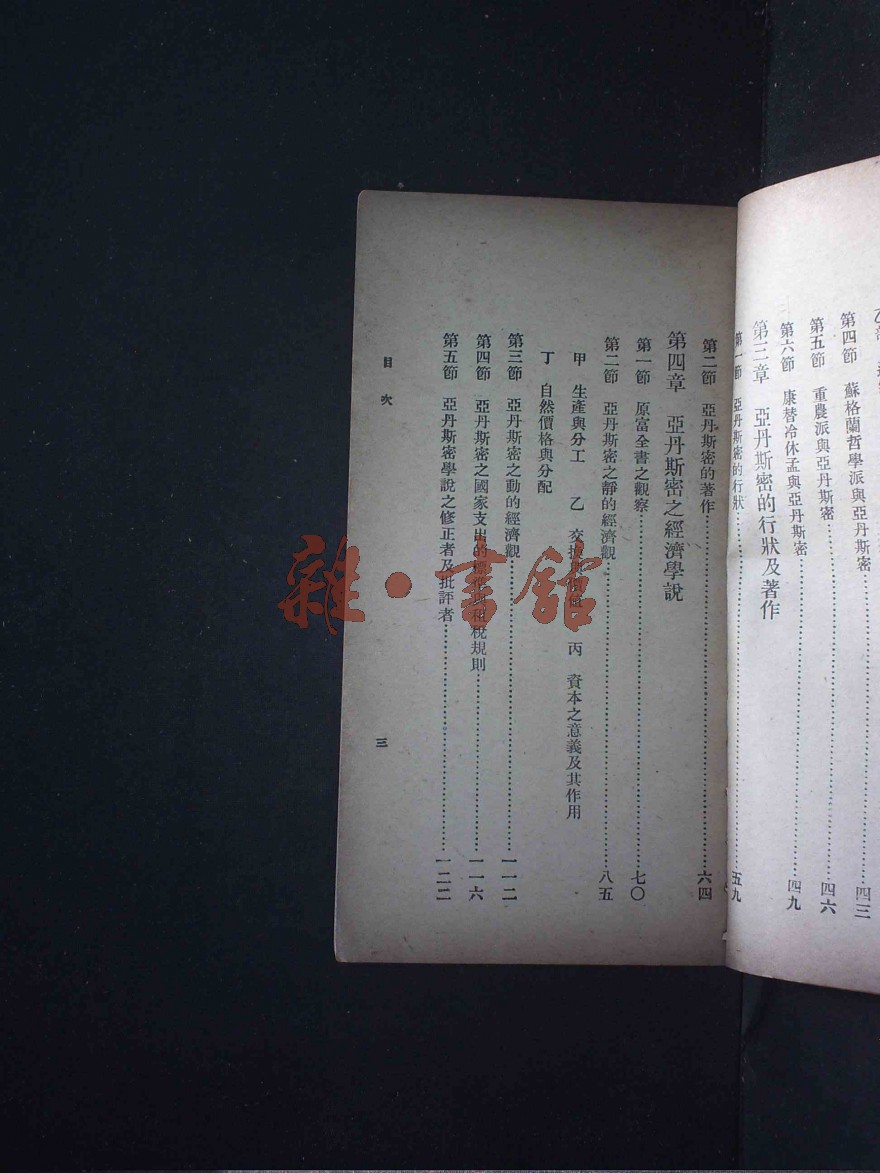 第四節　蘇格蘭哲學派與亞丹斯密……四三
第五節　重農派與亞丹斯密……四六
第六節　康替冷休孟與亞丹斯密……四九
第三章　亞丹斯密的行狀及著作
第一節　亞丹斯密的行狀……五九
第二節　亞丹斯密的著作……六四
第四章　亞丹斯密之經濟學說
第一節　原富全書之觀察……七〇
第二節　亞丹斯密之靜的經濟觀……八五
甲　生產與分工　乙　交換與價值　丙　資本之意義及其作用
丁　自然價格與分配
第三節　亞丹斯密之動的經濟觀……一一二
第四節　亞丹斯密之國家支出的與租稅規則……一一六
第五節　亞丹斯密學說之修正者及批評者……一二二
目次
三
雜·書館